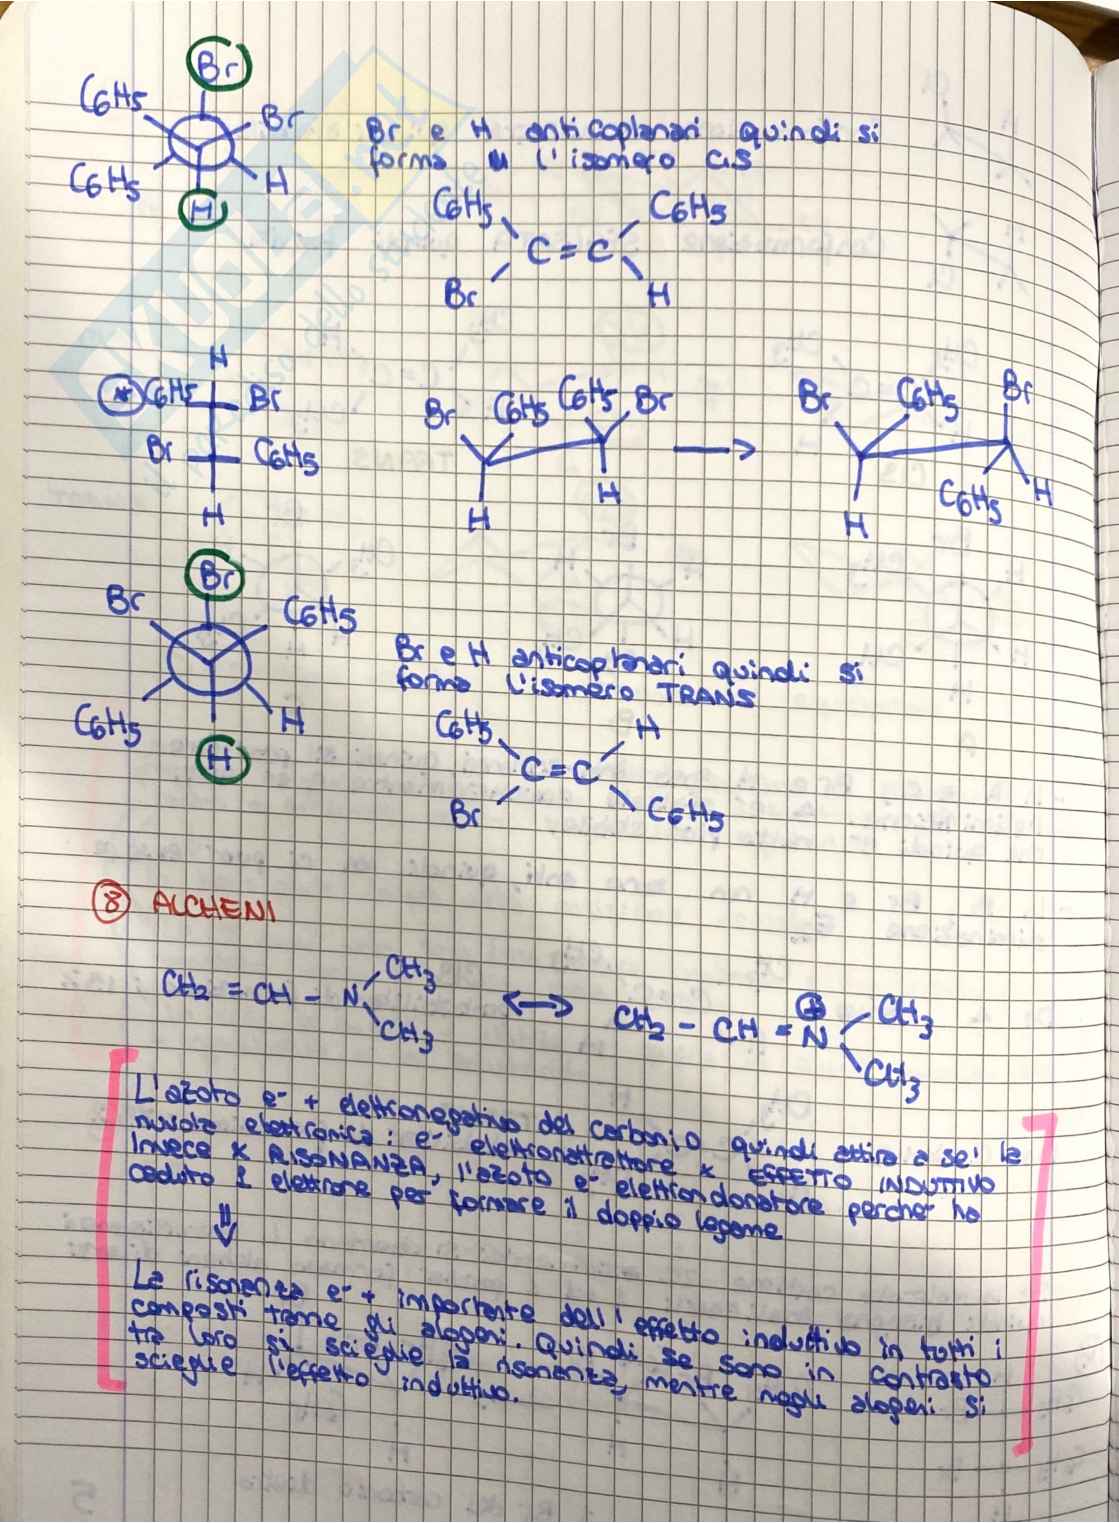 Br
C6H5 Br
C6H5 H
H
Br e H anticoplanari quindi si
forma l'isomero CIS
C6H5 C6H5
C=C
Br H
H
* C6H5 Br
Br C6H5
H
Br C6H5 C6H5 Br
H H
Br C6H5 Br
H C6H5 H
Br
Br C6H5
C6H5 H
H
Br e H anticoplanari quindi si
forma l'isomero TRANS
C6H5 H
C=C
Br C6H5
8 ALCHENI
CH2 = CH - N CH3 CH3 ↔ CH2 - CH = N ⊕ CH3 CH3
L'azoto e' + elettronegativo del carbonio quindi attira a se' la
nuvola elettronica: e' elettronattrattore x EFFETTO INDUTTIVO
Invece x RISONANZA, l'azoto e' elettrondonatore perche' ha
ceduto 1 elettrone per formare il doppio legame
⇓
La risonanza e' + importante dell'effetto induttivo in tutti i
composti tranne gli alogeni. Quindi se sono in contrasto
tra loro si sceglie la risonanza, mentre negli alogeni si
sceglie l'effetto induttivo.